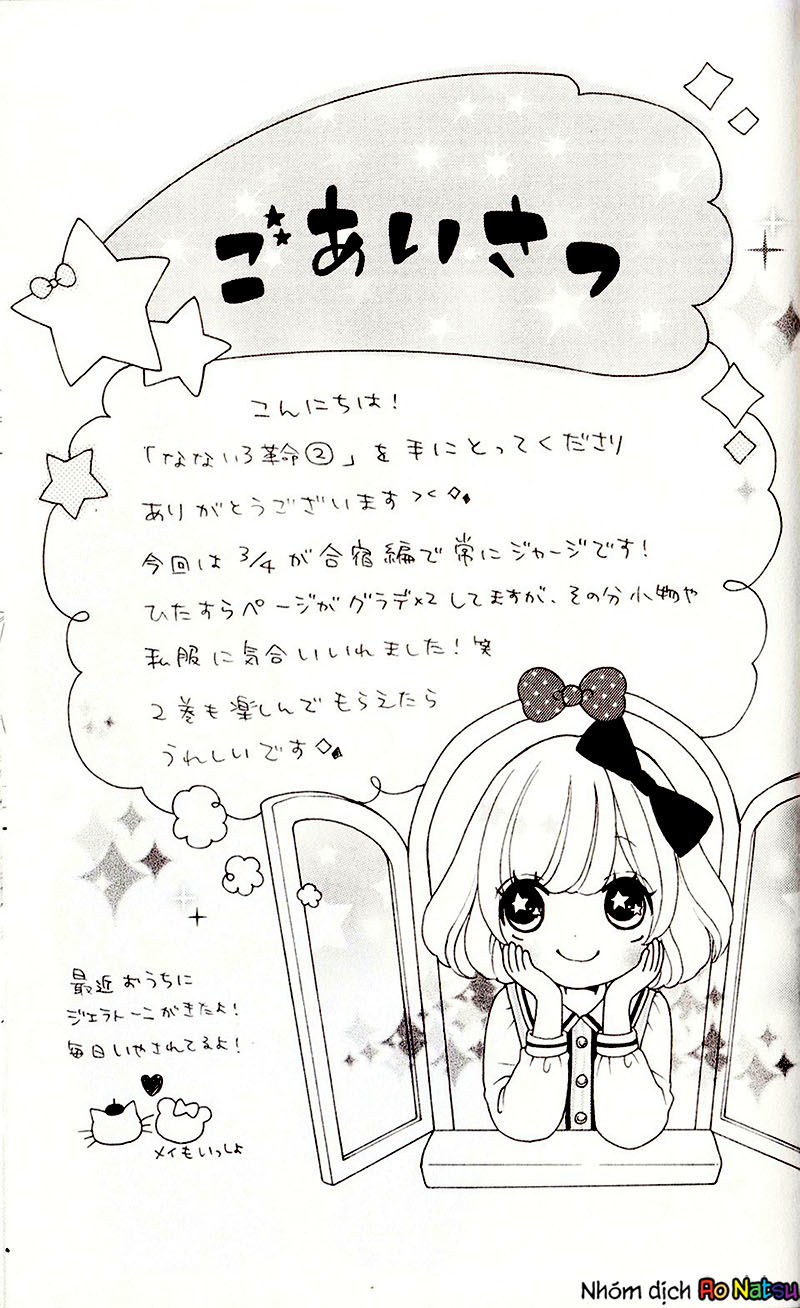 ごあいさつ
こんにちは!
「なないろ革命②」を手にとってくださり
ありがとうございます><◇◆
今回は3/4が合宿編で常にジャージです!
ひたすらページがグラデ×2してますが、その分小物や
私服に気合いいれました!笑
2巻も楽しんでもらえたら
うれしいです◇◆
最近おうちに
ジェラトーニがきたよ!
毎日いやされてるよ!
メイもいっしょ
Nhóm dịch Ao Natsu